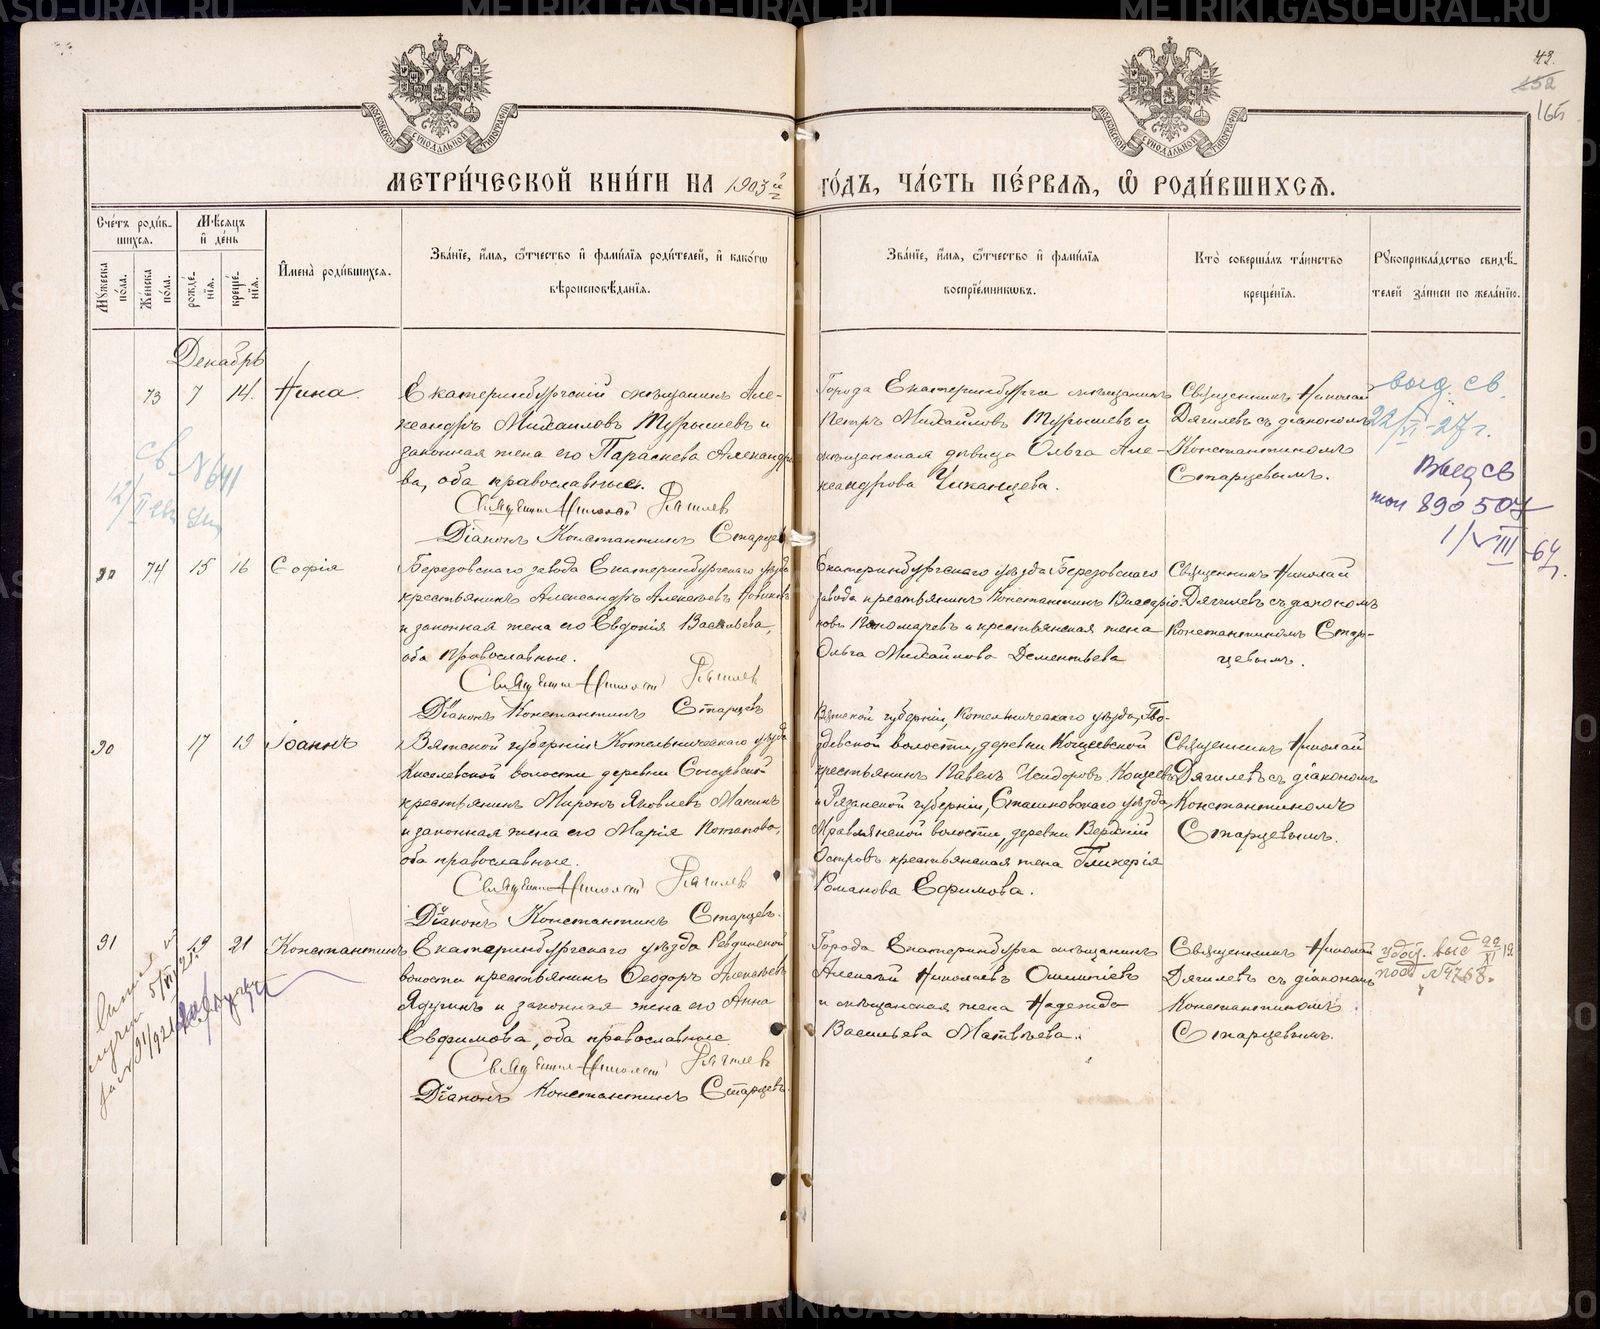 МЕТРИ́ЧЕСКОЙ КНИ́ГИ НА 1903й
ГО́ДЪ, ЧА́СТЬ ПЕ́РВАЯ, Ѿ РОДИ́ВШИХСЯ.
43.
152
165
МОСКОВСКОЙ СѴНОДАЛЬНОЙ ТИПОГРАФІИ
МОСКОВСКОЙ СѴНОДАЛЬНОЙ ТИПОГРАФІИ
Сче́тъ роди́вшихся.
Му́жеска по́ла.
Же́нска по́ла.
Мѣ́сяцъ и де́нь
рожде́нїя.
креще́нїя.
Имена̀ роди́вшихся.
Зва́нїе, и́мя, ѻ҆́тчество и фами́лїя роди́телей, и како́гѡ
вѣроисповѣ́данїя.
Зва́нїе, и́мя, ѻ҆́тчество и фами́лїя
воспрїе́мниковъ.
Кто̀ соверша́лъ та́инство
креще́нїя.
Рукоприкла́дство свидѣ́-
телей за́писи по жела́нїю.
Декабрь
73 7 14. Нина.
Екатеринбургскій мѣщанинъ Але-
ксандръ Михаиловъ Турышевъ и
законная жена его Параскева Александро-
ва, оба православные.
Священникъ Николай Дягилев
Діаконъ Константинъ Старцев
Города Екатеринбурга мѣщанинъ
Петръ Михайловъ Турышевъ и
мѣщанская дѣвица Ольга Але-
ксандрова Чиканцева.
Священникъ Николай
Дягилевъ съ діакономъ
Константиномъ
Старцевымъ.
выд. св.
22/VI-27 г.
Выд св
890507
1/VIII-64 г.
св N 641
74 15 16 Софія
Березовскаго завода Екатеринбургскаго уѣзда
крестьянинъ Александръ Алексѣевъ Новиковъ
и законная жена его Евдокія Васильева,
оба православные.
Священникъ Николай Дягилев
Діаконъ Константинъ Старцевъ
Екатеринбургскаго уѣзда Березовскаго
завода крестьянинъ Константинъ Виссаріо-
новъ Пономаревъ и крестьянская жена
Ольга Михайлова Дементьева
Священникъ Николай
Дягилевъ съ діакономъ
Константиномъ Стар-
цевымъ.
90 17 19 Іоаннъ
Вятской губерніи Котельническаго уѣзда
Киселевской волости деревни
крестьянинъ Миронъ Яковлевъ Макинъ
и законная жена его Марія Потапова,
оба православные.
Священникъ Николай Дягилев
Діаконъ Константинъ Старцевъ.
Вятской губерніи, Котельническаго уѣзда, Гво-
здевской волости, деревни Кощеевской
крестьянинъ Павелъ Исидоровъ Кощеевъ
и Рязанской губерніи, уѣзда,
волости, деревни Верхній
Островъ крестьянская жена Гликерія
Романова Ефимова.
Священникъ Николай
Дягилевъ съ діакономъ
Константиномъ
Старцевымъ.
91 19 21 Константинъ
Екатеринбургскаго уѣзда Ревдинской
волости крестьянинъ Ѳеодоръ Алексѣевъ
Ядринъ и законная жена его Анна
Евфимова, оба православные
Священникъ Николай Дягилев
Діаконъ Константинъ Старцевъ.
Города Екатеринбурга мѣщанинъ
Алексѣй Николаевъ
и мѣщанская жена Надежда
Васильева Матвѣева.
Священникъ Николай
Дягилевъ съ діакономъ
Константиномъ
Старцевымъ.
выс 22/XI 19
под N 4768.
METRIKI.GASO-URAL.RU